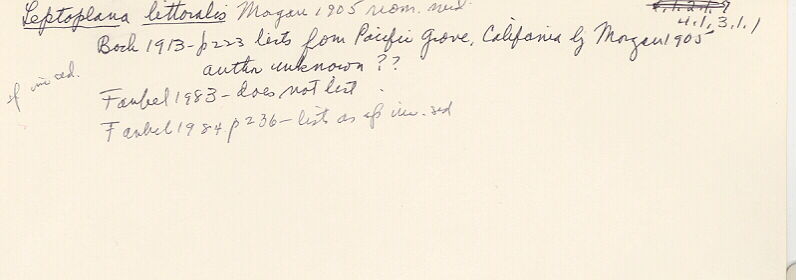 Leptoplana littoralis Morgan 1905 nom. nud.
4, 1, 3, 1, 1
Bock 1913 - p 223 lists from Pacific Grove, California by Morgan 1905
author unknown ??
sp inc sed.
Faubel 1983 - does not list.
Faubel 1984 p 236 - lists as sp inc. sed